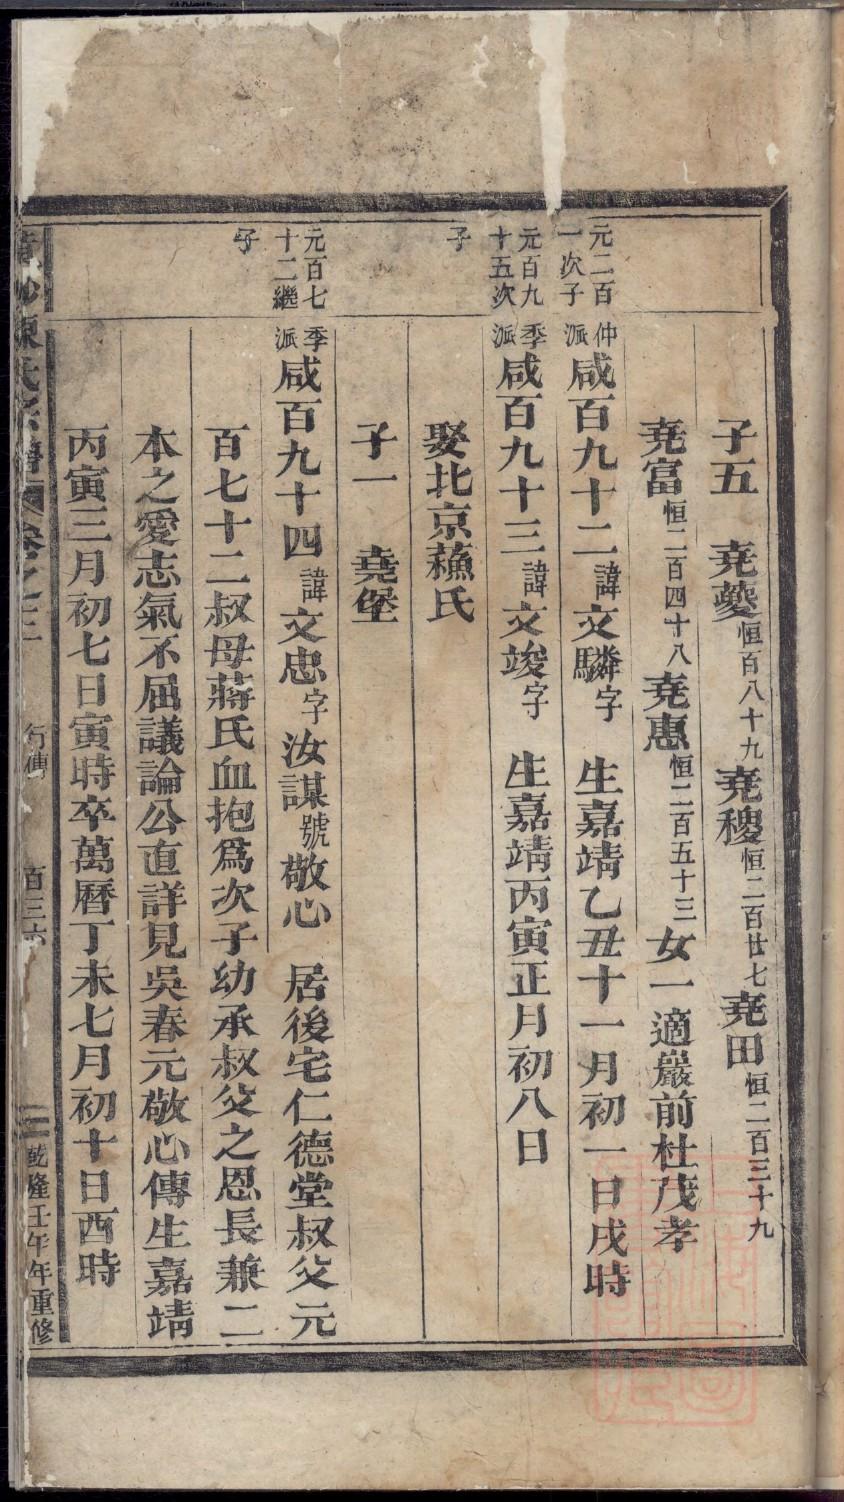 子五 堯夔恒百八十九堯稷恒二百廿七堯田恒二百三十九
堯富恒二百四十八堯惠恒二百五十三女一適嚴前杜茂孝
元二百一次子
仲派咸百九十二諱文驎字 生嘉靖乙丑十一月初一日戌時
元百九十五次子
季派咸百九十三諱文竣字 生嘉靖丙寅正月初八日
娶北京蘓氏
子一 堯堡
元百七十二繼子
季派咸百九十四諱文忠字汝謀號敬心 居後宅仁德堂叔父元
百七十二叔母蔣氏血抱爲次子幼承叔父之恩長兼二
本之愛志氣不屈議論公直詳見吳春元敬心傳生嘉靖
丙寅三月初七日寅時卒萬曆丁未七月初十日酉時
陳氏宗譜 卷之三 行傳 百三六 乾隆壬午年重修